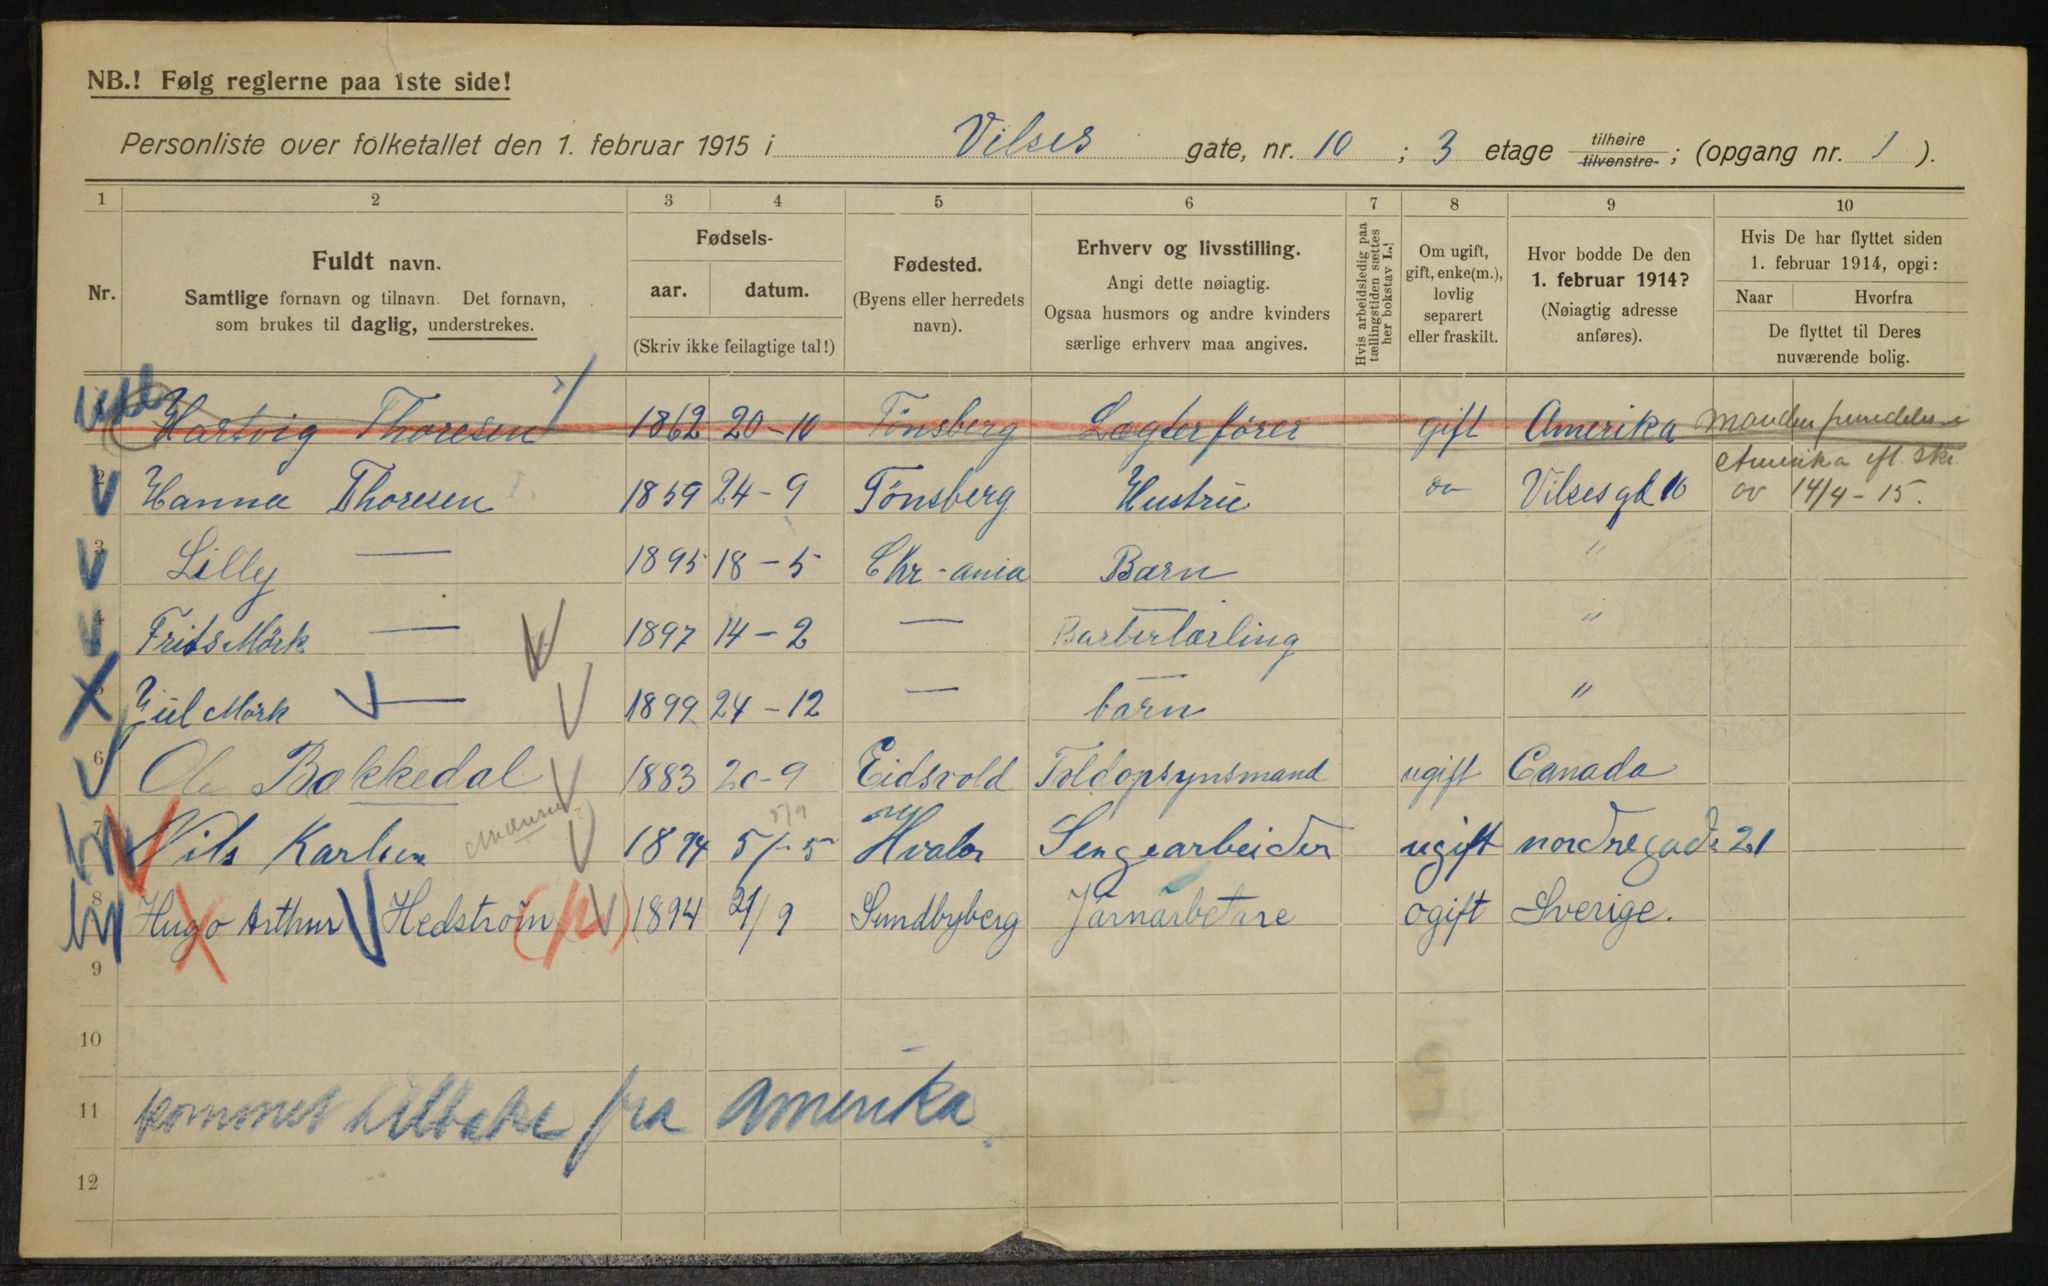 NB.! Følg reglerne paa 1ste side!
Personliste over folketallet den 1. februar 1915 i Vilses gate, nr. 10 ; 3 etage tilhøire tilvenstre ; (opgang nr. 1 ).
1 2 3 4 5 6 7 8 9 10
Nr.
Fuldt navn.
Samtlige fornavn og tilnavn. Det fornavn,
som brukes til daglig, understrekes.
Fødsels-
aar. datum.
(Skriv ikke feilagtige tal!)
Fødested.
(Byens eller herredets
navn).
Erhverv og livsstilling.
Angi dette nøiagtig.
Ogsaa husmors og andre kvinders
særlige erhverv maa angives.
Hvis arbeidsledig paa
tællingstiden sættes
her bokstav L.!
Om ugift,
gift, enke(m.),
lovlig
separert
eller fraskilt.
Hvor bodde De den
1. februar 1914?
(Nøiagtig adresse
anføres).
Hvis De har flyttet siden
1. februar 1914, opgi:
Naar Hvorfra
De flyttet til Deres
nuværende bolig.
Hartvig Thoresen 1862 20-10 Tönsberg Lægterfører gift Amerika
Amerika efl. skr.
2 Hanna Thoresen 1859 24-9 Tönsberg Hustru Vilsesgd 10 av 14/4-15.
3 Lilly — 1895 18-5 Chr-ania Barn "
4 Frits Mörk — 1897 14-2 — Barberlærling "
5 Jul Mörk — 1899 24-12 — barn "
6 Ola Bakkedal 1883 20-9 Eidsvold Toldopsynsmand ugift Canada
7 Nils Karlsen 1894 5/-5 Hvaler Sengearbeider ugift nordregade 21
8 Hugo Arthur Hedström 1894 21/9 Sundbyberg Järnarbetare ogift Sverige.
9
10
11 kommet tilbake fra Amerika.
12